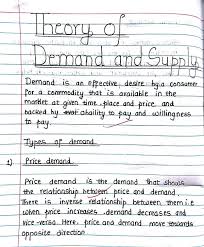 Theory of
Demand and Supply
Demand is an effective desire by a consumer
for a commodity that is available in the
market at given time, place and price, and
backed by ability to pay and willingness
to pay.
Types of demand
1) Price demand
Price demand is the demand that shows
the relationship between price and demand.
There is inverse relationship between them i.e
when price increases, demand decreases and
vice-versa. Here price and demand move towards
opposite direction